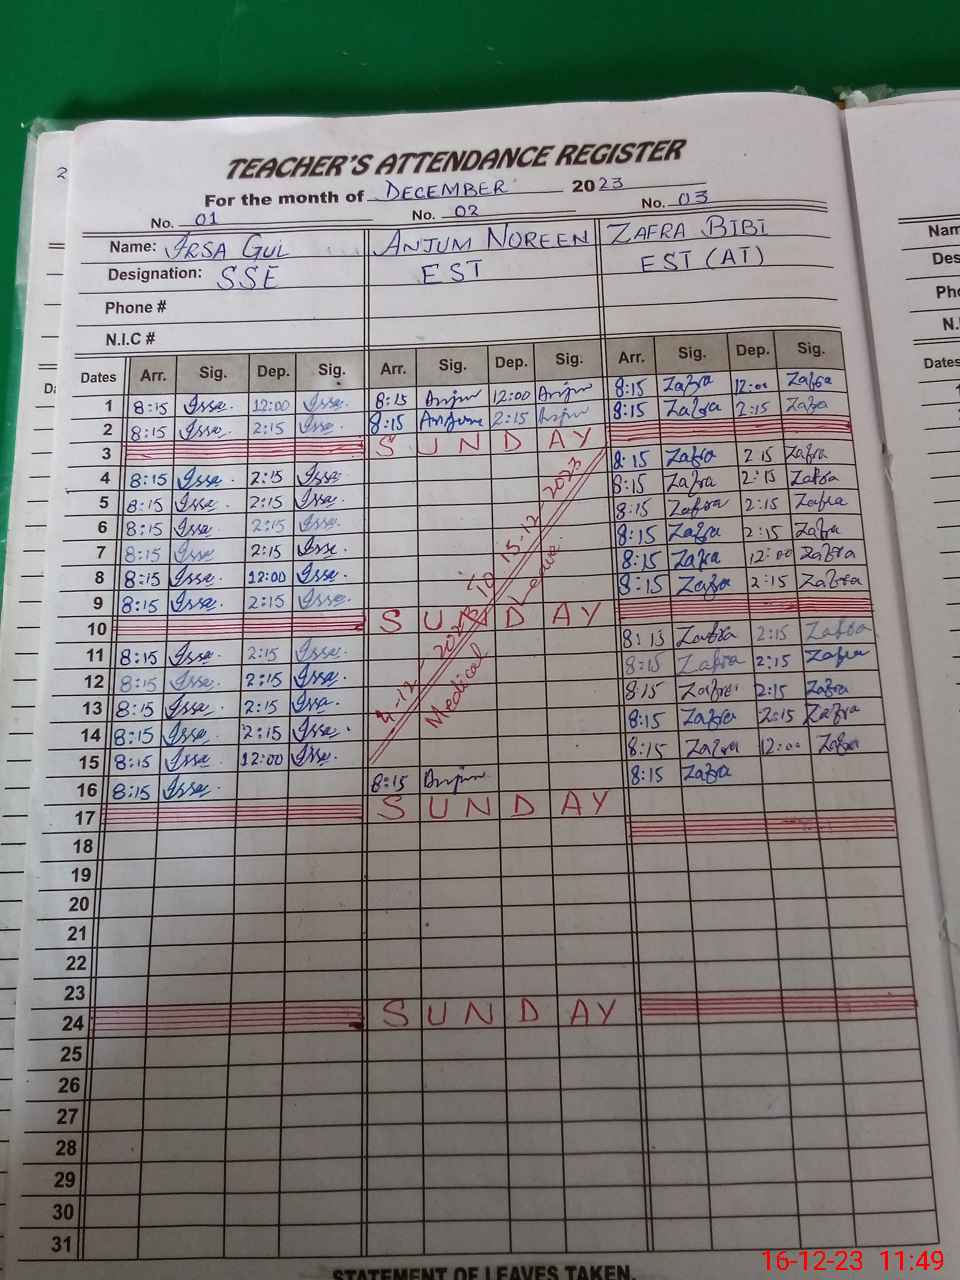 2
TEACHER'S ATTENDANCE REGISTER
For the month of DECEMBER 2023
No. 01 No. 02 No. 03
Name: IRSA GUL ANJUM NOREEN ZAFRA BIBI
Designation: SSE EST EST (AT)
Phone #
N.I.C #
Dates Arr. Sig. Dep. Sig. Arr. Sig. Dep. Sig. Arr. Sig. Dep. Sig.
1 8:15 Irsa. 12:00 Irsa. 8:15 Anjum 12:00 Anjum 8:15 Zafra 12:00 Zafra
2 8:15 Irsa. 2:15 Irsa. 8:15 Anjum 2:15 Anjum 8:15 Zafra 2:15 Zafra
3 SUNDAY
4 8:15 Irsa. 2:15 Irsa. 8:15 Zafra 2 15 Zafra
5 8:15 Irsa. 2:15 Irsa. 8:15 Zafra 2:15 Zafra
6 8:15 Irsa. 2:15 Irsa. 8:15 Zafra 2:15 Zafra
7 8:15 Irsa. 2:15 Irsa. 8:15 Zafra 2:15 Zafra
8 8:15 Irsa. 12:00 Irsa. 8:15 Zafra 12:00 Zafra
9 8:15 Irsa. 2:15 Irsa. 8:15 Zafra 2:15 Zafra
10 SUNDAY
11 8:15 Irsa. 2:15 Irsa. 8:15 Zafra 2:15 Zafra
12 8:15 Irsa. 2:15 Irsa. 8:15 Zafra 2:15 Zafra
13 8:15 Irsa. 2:15 Irsa. 8:15 Zafra 2:15 Zafra
14 8:15 Irsa. 2:15 Irsa. 8:15 Zafra 2:15 Zafra
15 8:15 Irsa. 12:00 Irsa. 8:15 Zafra 12:00 Zafra
4-12-2023 to 15-12-2023
Medical Leave.
16 8:15 Irsa. 8:15 Anjum 8:15 Zafra
17 SUNDAY
18
19
20
21
22
23
24 SUNDAY
25
26
27
28
29
30
31
STATEMENT OF LEAVES TAKEN.
16-12-23 11:49